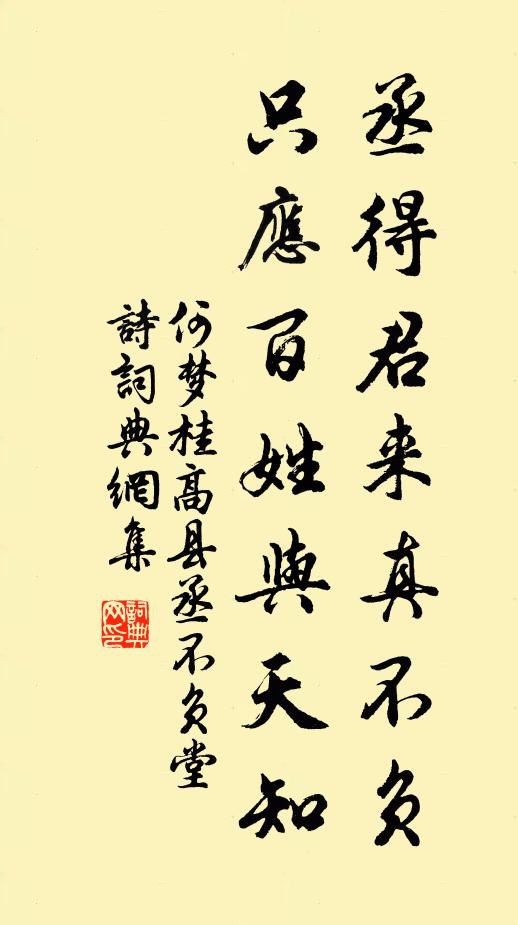 丞得君来真不负
只應百姓與天知
何梦桂高县丞不负堂
詩詞典網集
詞典网印